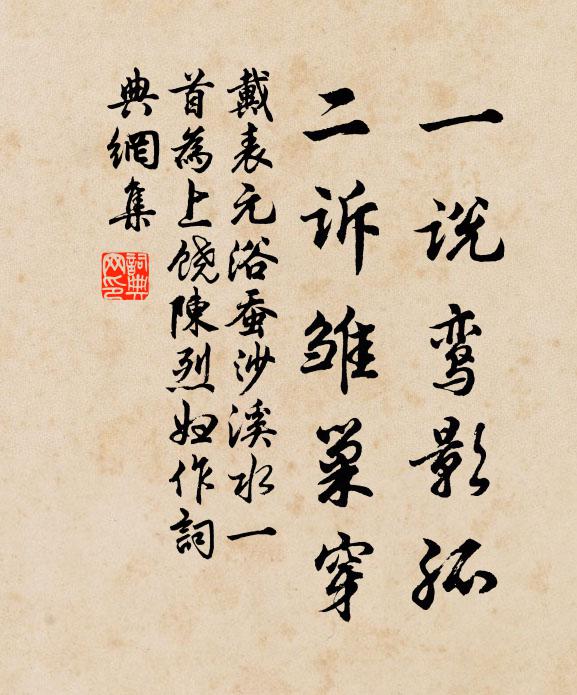 一说鸾影孤
二诉雏巢穿
戴表元浴蚕沙溪水一
首為上饶陳烈妇作詞
典網集
詞典网印